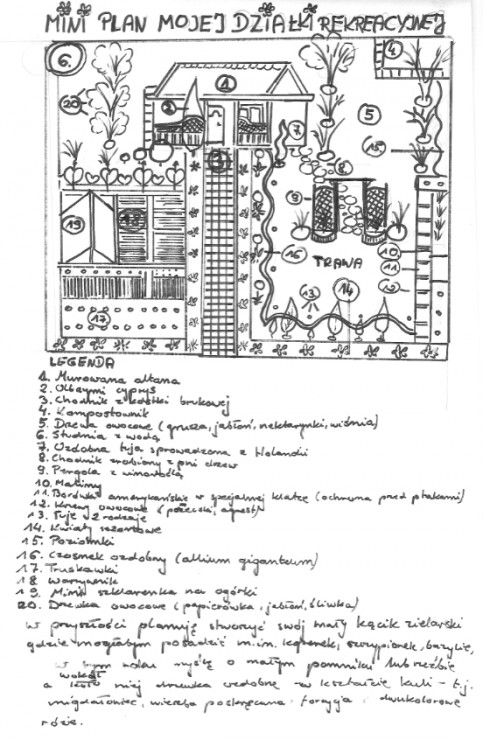 MINI PLAN MOJEJ DZIAŁKI REKREACYJNEJ
6. 4
1
20 2 5
7 15
3 8
9
19 18
16 TRAWA 10
11
13 14 12
17
LEGENDA
1. Murowana altana
2. Olbrzymi cyprys
3. Chodnik z kostki brukowej
4. Kompostownik
5. Drzewa owocowe (grusza, jabłoń, nektarynki, wiśnia)
6. Studnia z wodą
7. Ozdobna tuja sprowadzona z Holandii
8. Chodnik zrobiony z pni drzew
9. Pergola z winoroślą
10. Maliny
11. Borówki amerykańskie w specjalnej klatce (ochrona przed ptakami)
12. Krzewy owocowe (porzeczki, agrest)
13. Tuje 2 rodzaje
14. Kwiaty sezonowe
15. Poziomki
16. Czosnek ozdobny (allium giganteum)
17. Truskawki
18 Warzywnik
19. Mini szklarenka na ogórki
20. Drzewka owocowe (papierówka, jabłoń, śliwka)
W przyszłości planuję stworzyć swój mały kącik zielarski
gdzie mogłabym posadzić m.in. koperek, szczypiorek, bazylię,
w tym roku myślę o małym pomniku lub rzeźbie
a wokół niej drzewka ozdobne w kształcie kuli - t.j.
migdałowiec, wierzba poskręcana forsycja i dwukolorowe
róże.